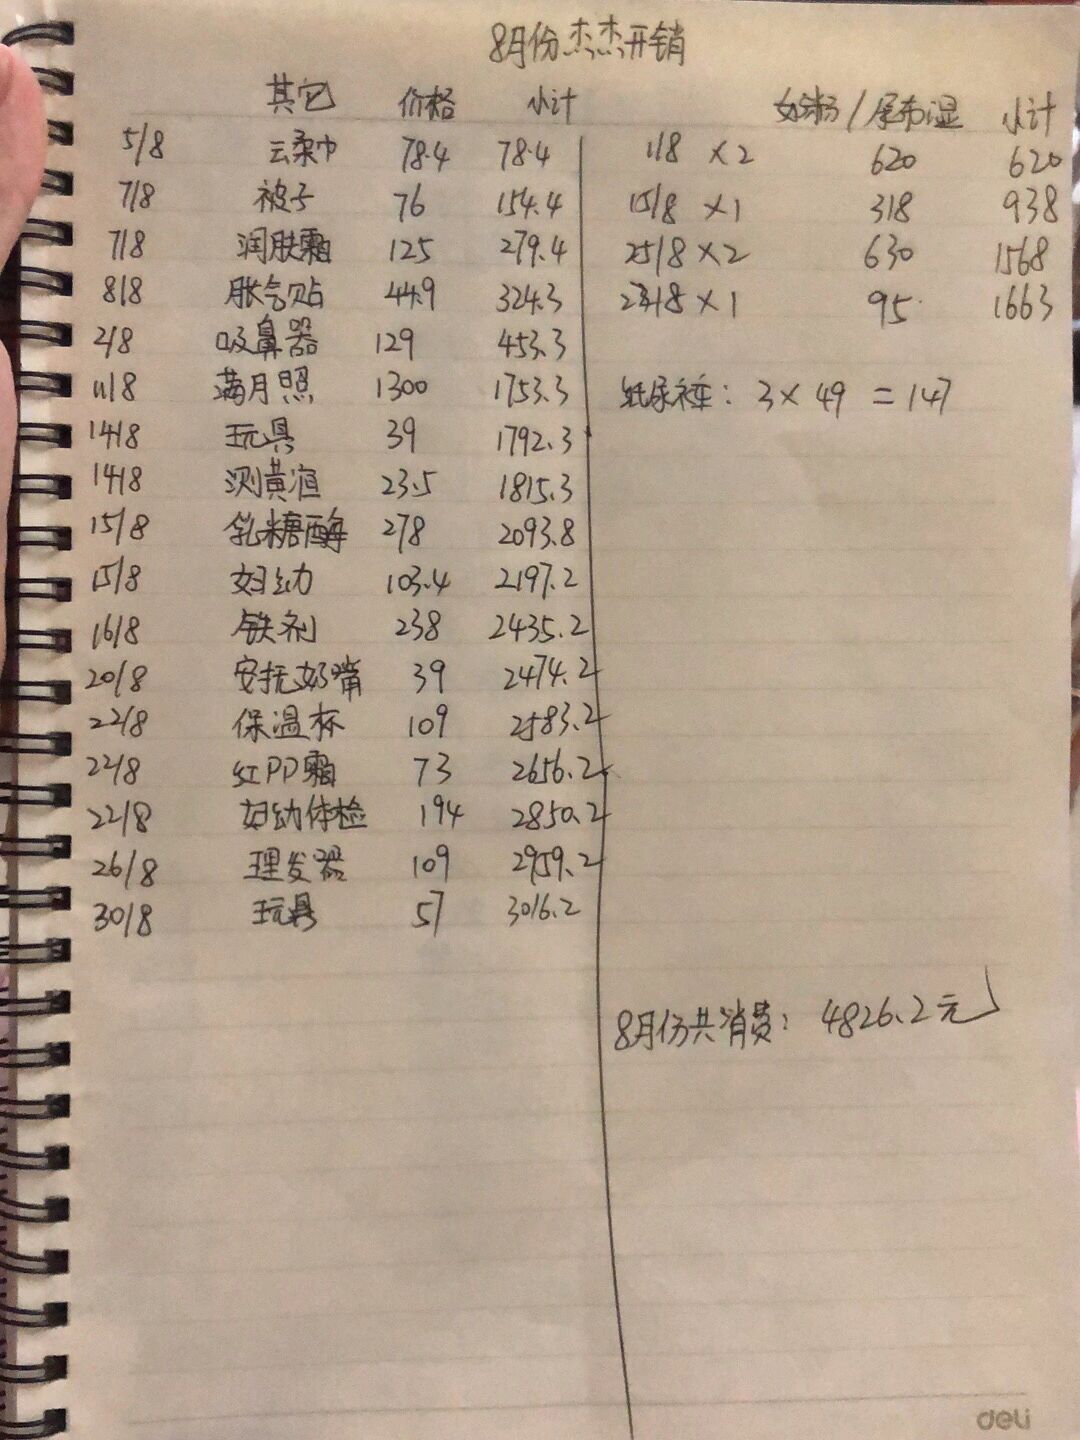 8月份杰杰开销
其它 价格 小计
5/8 云柔巾 78.4 78.4
7/8 被子 76 154.4
7/8 润肤霜 125 279.4
8/8 胀气贴 44.9 324.3
2/8 吸鼻器 129 453.3
11/8 满月照 1300 1753.3
14/8 玩具 39 1792.3
14/8 测黄疸 23.5 1815.3
15/8 乳糖酶 278 2093.8
15/8 妇幼 103.4 2197.2
16/8 铁剂 238 2435.2
20/8 安抚奶嘴 39 2474.2
22/8 保温杯 109 2583.2
22/8 红PP霜 73 2656.2
22/8 妇幼体检 194 2850.2
26/8 理发器 109 2959.2
30/8 玩具 57 3016.2
奶粉/尿布湿 小计
1/8 ×2 620 620
15/8 ×1 318 938
25/8 ×2 630 1568
×1 95 1663
纸尿裤: 3×49=147
8月份共消费: 4826.2元
deli